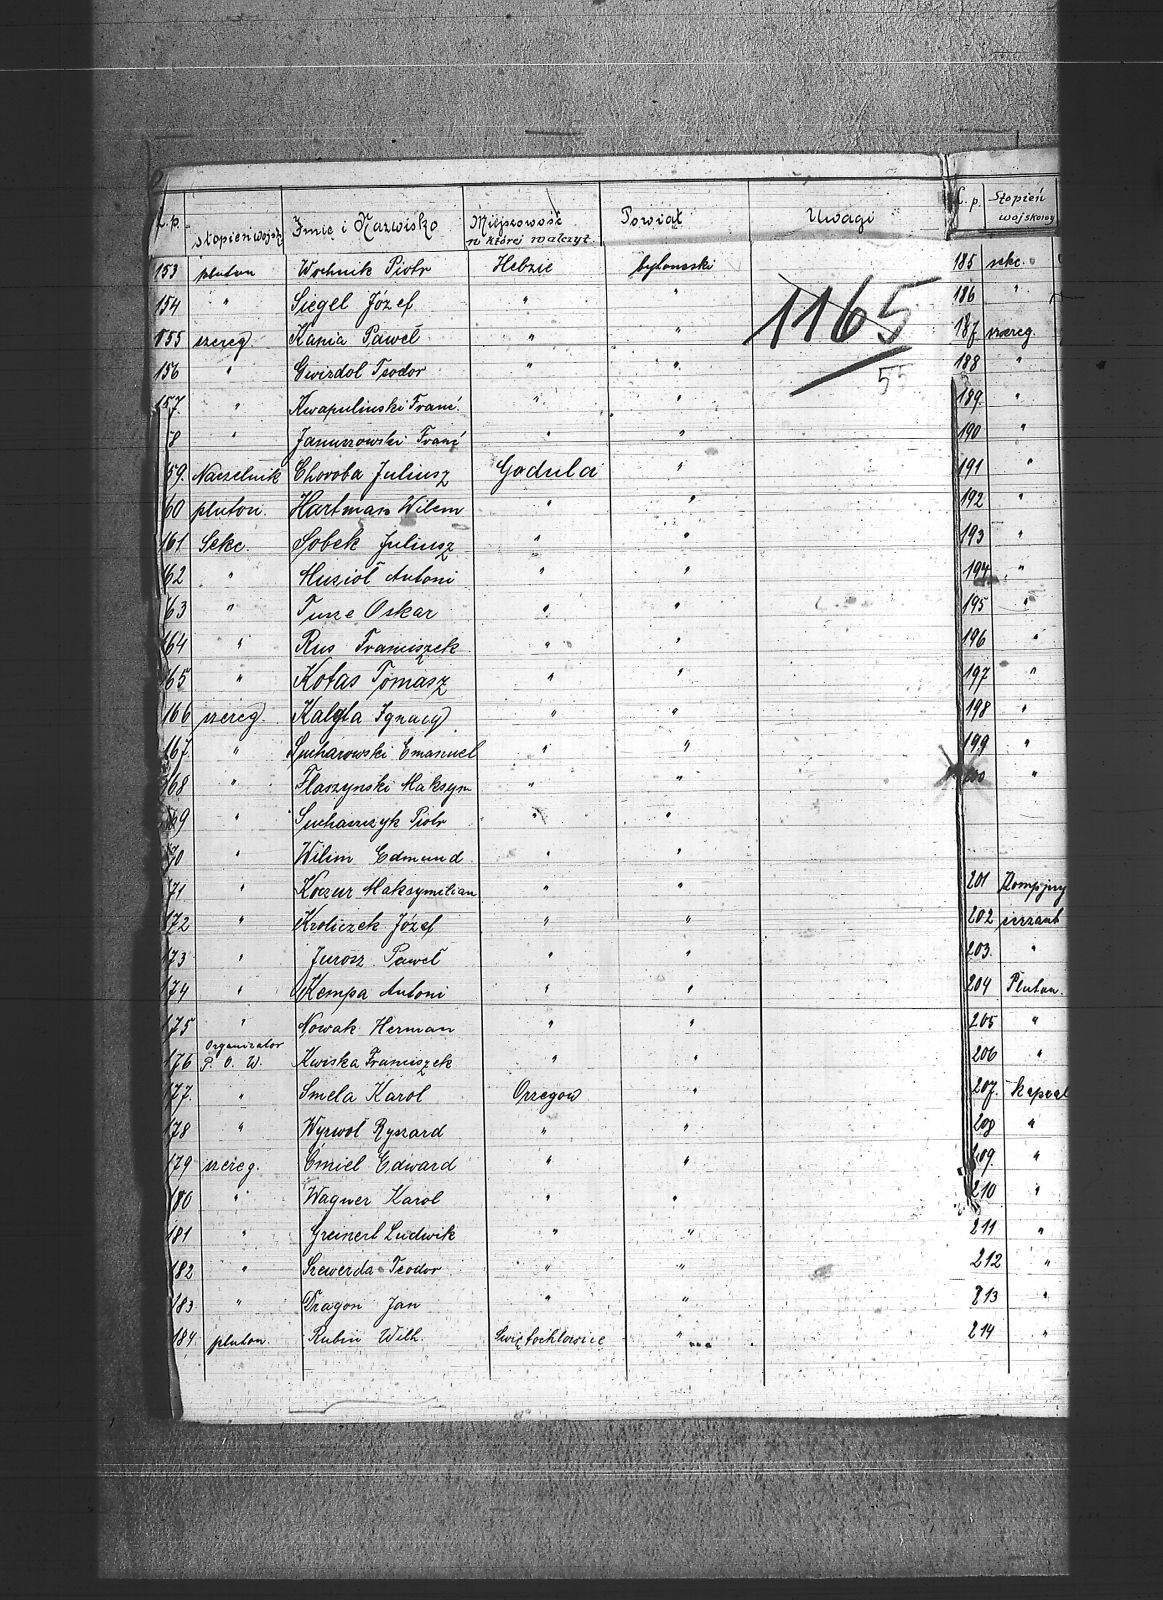 L.p. Stopień wojsk. Imię i Nazwisko Miejscowość w której walczył Powiat Uwagi
153 pluton Wochnik Piotr Hebzie bytomski
154 " Siegel Józef " "
1165
155 szereg. Kania Paweł " "
156 " Gwizdol Teodor " "
55
157 " Kwapulinski Franc. " "
8 " Januszowski Franc " "
59. Naczelnik Choroba Juliusz Godula "
60 pluton. Hartman Wilem " "
161 Sekc. Sobek Juliusz " "
62 " Musioł Antoni " "
63 " Tusze Oskar " "
64 " Rus Franciszek " "
65 " Kotas Tomasz " "
166 szereg. Kalyta Ignacy " "
167. " Sucharowski Emanuel " "
68 " Flaszynski Maksym " "
69 " Suchaszczyk Piotr " "
70 " Wilim Edmund " "
71 " Koczur Maksymilian " "
172 " Kroliczek Józef " "
173 " Jurosz Paweł " "
174 " Kempa Antoni " "
175 " Nowak Herman " "
176 Organizator P. O. W. Kwiska Franciszek " "
177. " Smela Karol Orzegow "
178 " Wyrwoł Ryszard " "
179 szereg. Cmiel Edward " "
180 " Wagner Karol " "
181 " Greinert Ludwik " "
182 " Szewerda Teodor " "
183 " Dragon Jan " "
184 pluton. Rubin Wilh. Swiętochłowice "
L.p. Stopień wojskowy
185 sekc.
186 "
187 szereg.
188 "
189. "
190 "
191 "
192 "
193 "
194 "
195 "
196 "
197 "
198 "
199 "
200 "
201
202 sierzant
203. "
204 Pluton.
205 "
206 "
207. Kapral
208 "
209. "
210 "
211 "
212 "
213 "
214 "